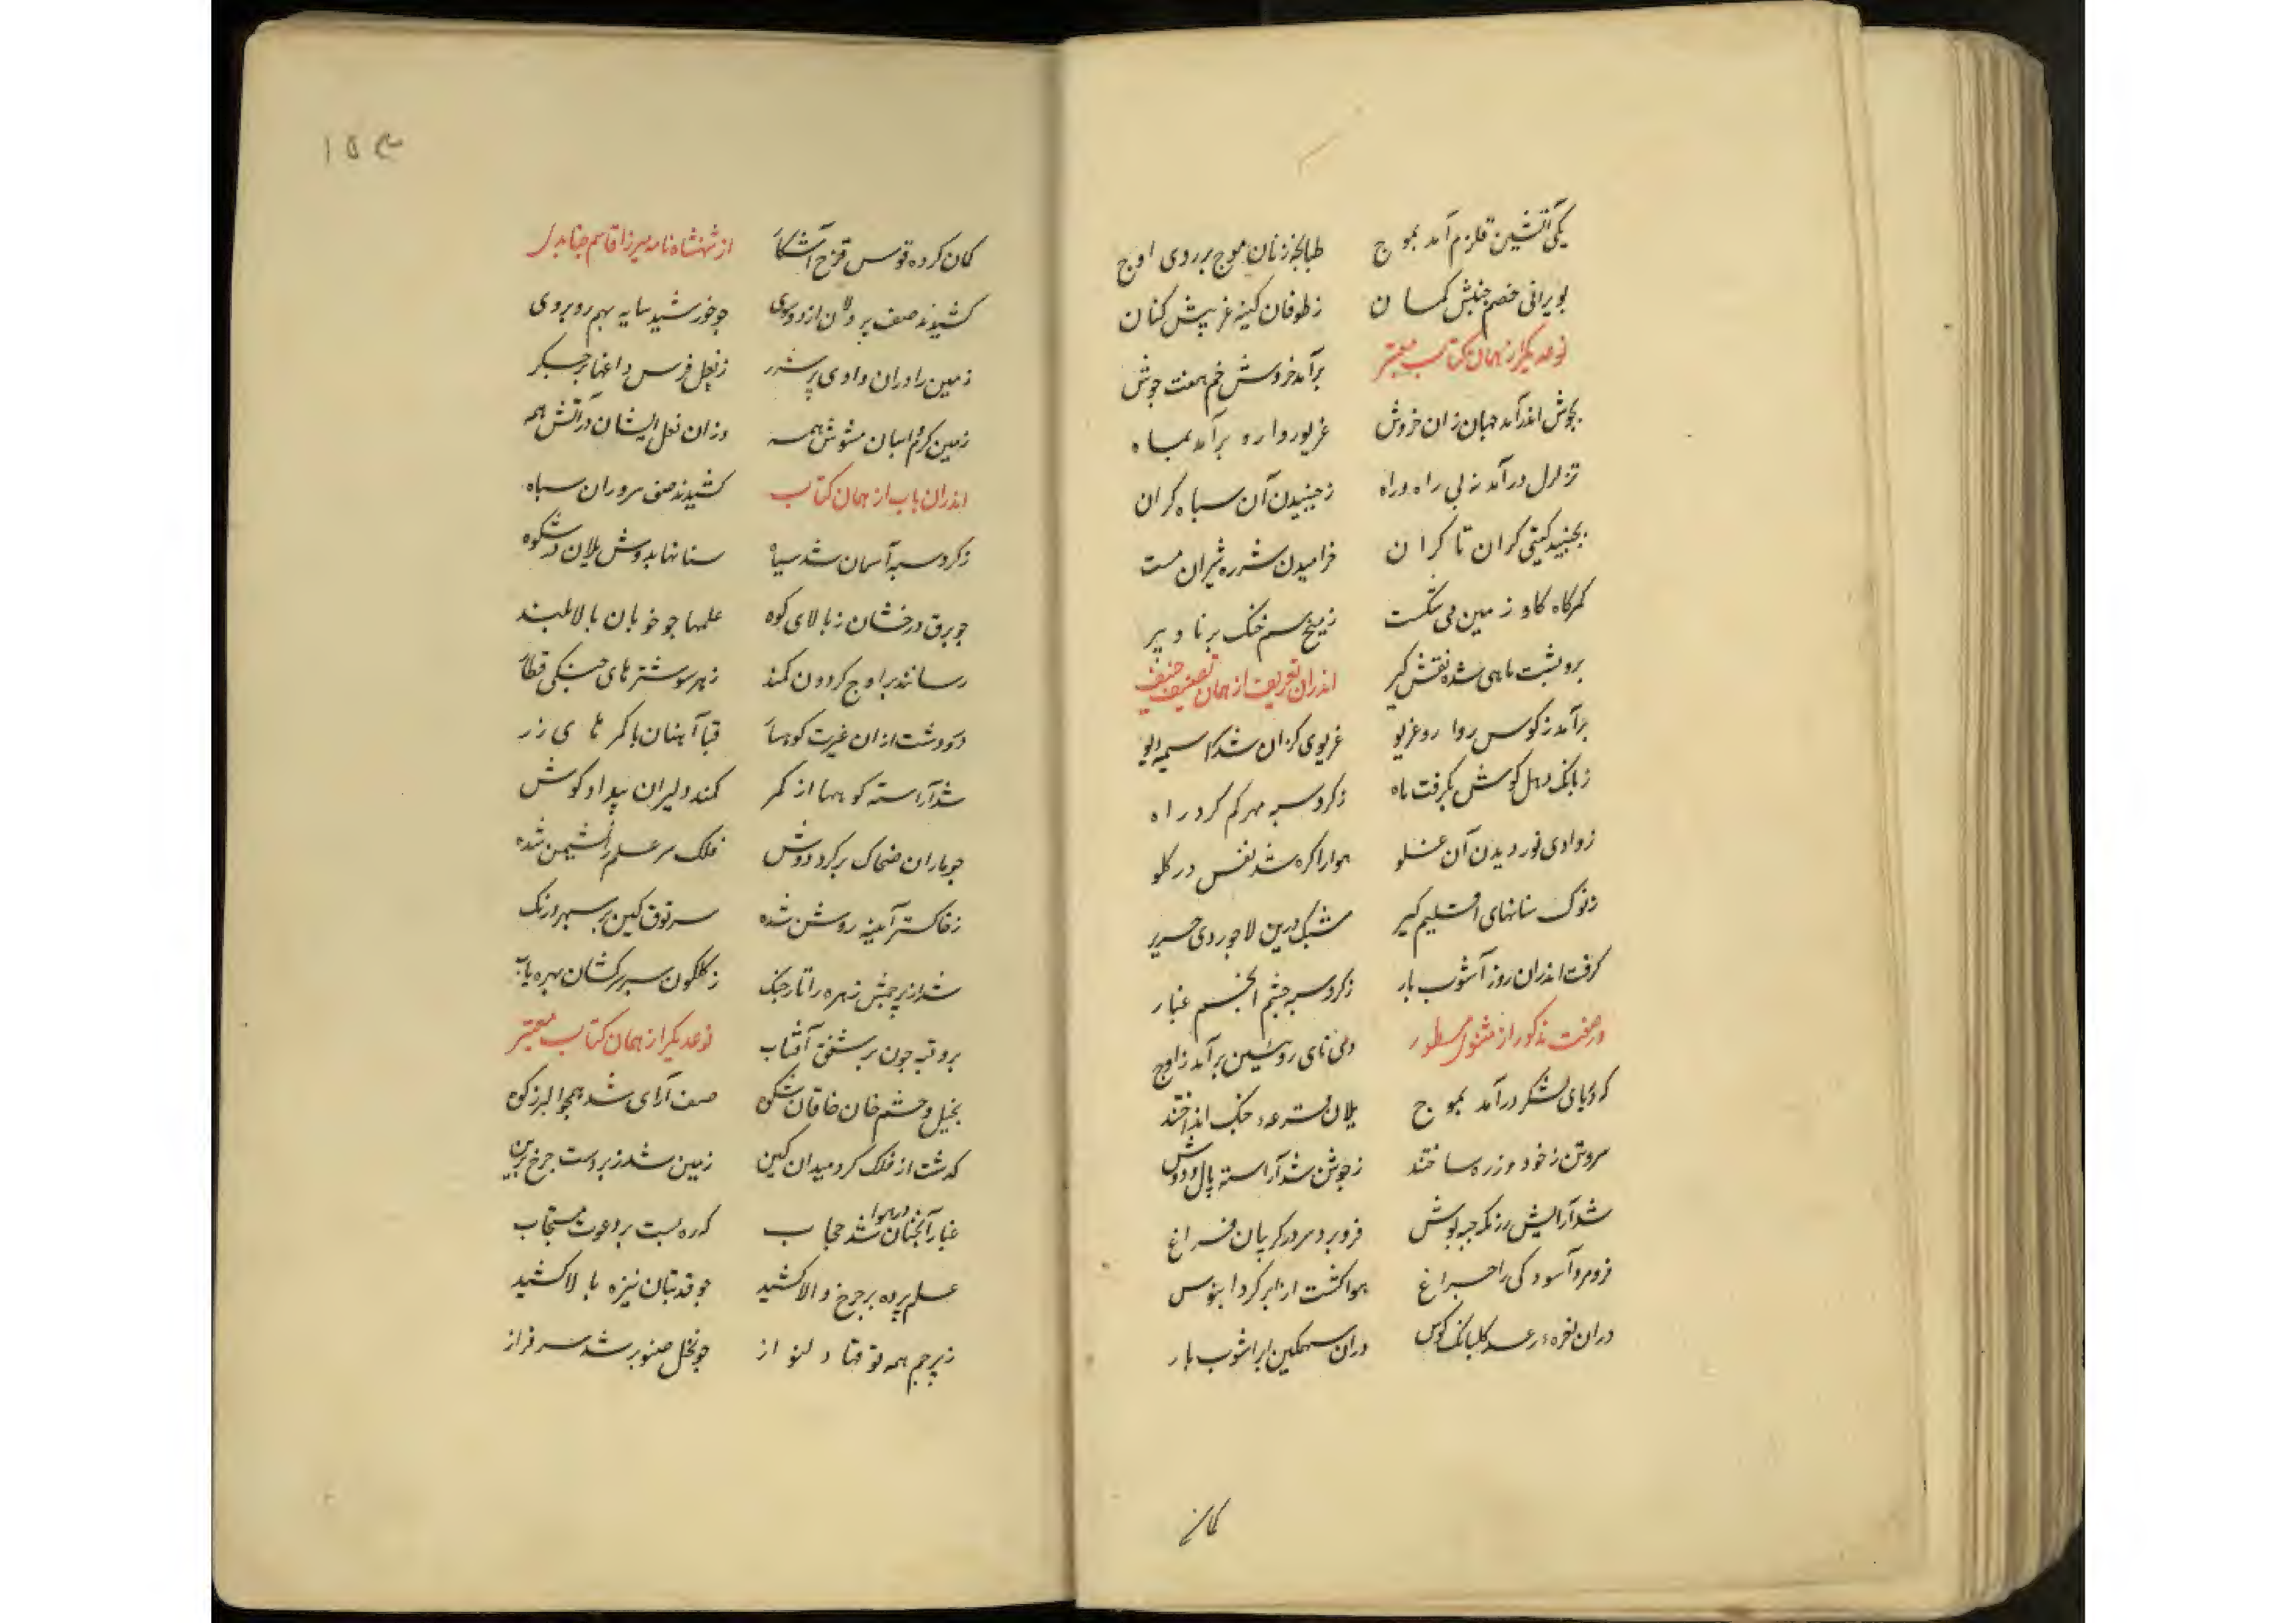 یکی آتشین قلزم آمد بموج    طبانچه زنان موج بر روی اوج
بویرانی خصم جنبش کسان    ز طوفان کینه غریپش کنان
نوعدیکر از همان کتاب معتبر    برآمد خروش خم هفت جوش
بجوش اندرآمد جهان زان خروش    غریو روارو برآمد بماه
تزلزل درآمد ز بی راه و راه    ز جنبیدن آن سپاه کران
بجنبید کیتی کران تا کران    خرامیدن شرزه شیران مست
کمرکاه کاو زمین می شکست    ز میخ سم خنک برنا و پیر
برو پشت ماهی شده نقش کیر    اندران تعریف از همان تصنیف حنیف
برآمد ز کوس روارو غریو    غریوی کزان شد سراسیمه دیو
ز بانک دهل کوش بکرفت ماه    ز کرد سپه مهر کم کرد راه
ز وادی نوردیدن آن غلو    هوا را کره شد نفس در کلو
ز نوک سنانهای اقلیم کیر    مشبک درین لاجوردی حریر
کرفت اندران روز آشوب بار    ز کرد سپه چشم انجم غبار
در صفت مذکور از مثنوی مسطور    دل نای رویین برآمد ز اوج
که دریای لشکر درآمد بموج    یلان قرعه جنک انداختند
سروتن ز خود و زره ساختند    ز جوشن شد آراسته یال و دوش
شد آرایش رزمکه جبه پوش    فرو برد سر در کریبان فراغ
فرو مرد آسودکی را چراغ    هوا کشت از ابر کرد آبنوس
دران نعره رعد کلبانک کوس    دران سهمکین ابر آشوب بار
کمان
۱۵۴
کمان کرده قوس قزح آشکار    از شهنشاه نامه میرزا قاسم جنابدی
کشیدند صف پردلان از دو سوی    چو خورشید سایه بهم روبروی
زمین را دران وادی پر شرر    ز نعل فرس داغها بر جکر
زمین کرم اسبان مشوش همه    وزان نعل ایشان در آتش همه
اندران باب از همان کتاب    کشیدند صف سروران سپاه
ز کرد سپه آسمان شد سیاه    سنانها بدوش یلان در شکوه
چو برق درخشان ز بالای کوه    علمها چو خوبان بالا بلند
رسانند بر اوج کردون کمند    ز هر سو شترهای جنکی قطار
در و دشت از ان غیرت کوهسار    قبا آهنان با کمرهای زر
شد آراسته کوهها از کمر    کمند دلیران بیداد کوش
چو ماران ضحاک بر کرد دوش    فلک سر علم را نشیمن شده
ز خاکستر آیینه روشن شده    سر توق کین بر سپهر دو رنک
شد از پرچمش زهره را تار چنک    ز کلکون سپر سرکشان بهره یاب
برو قبه چون بر شفق آفتاب    نوعدیکر از همان کتاب معتبر
بخیل و حشم خان خاقان شکوه    صف آرای شد همچو البرز کوه
کذشت از فلک کرد میدان کین    زمین شد زبردست چرخ برین
غبار آنچنان در هوا شد حجاب    که ره بست بر دعوت مستجاب
علم پرده بر چرخ والا کشید    چو قد بتان نیزه بالا کشید
ز پرچم همه توقها دلنواز    چو نخل صنوبر شد سرفراز